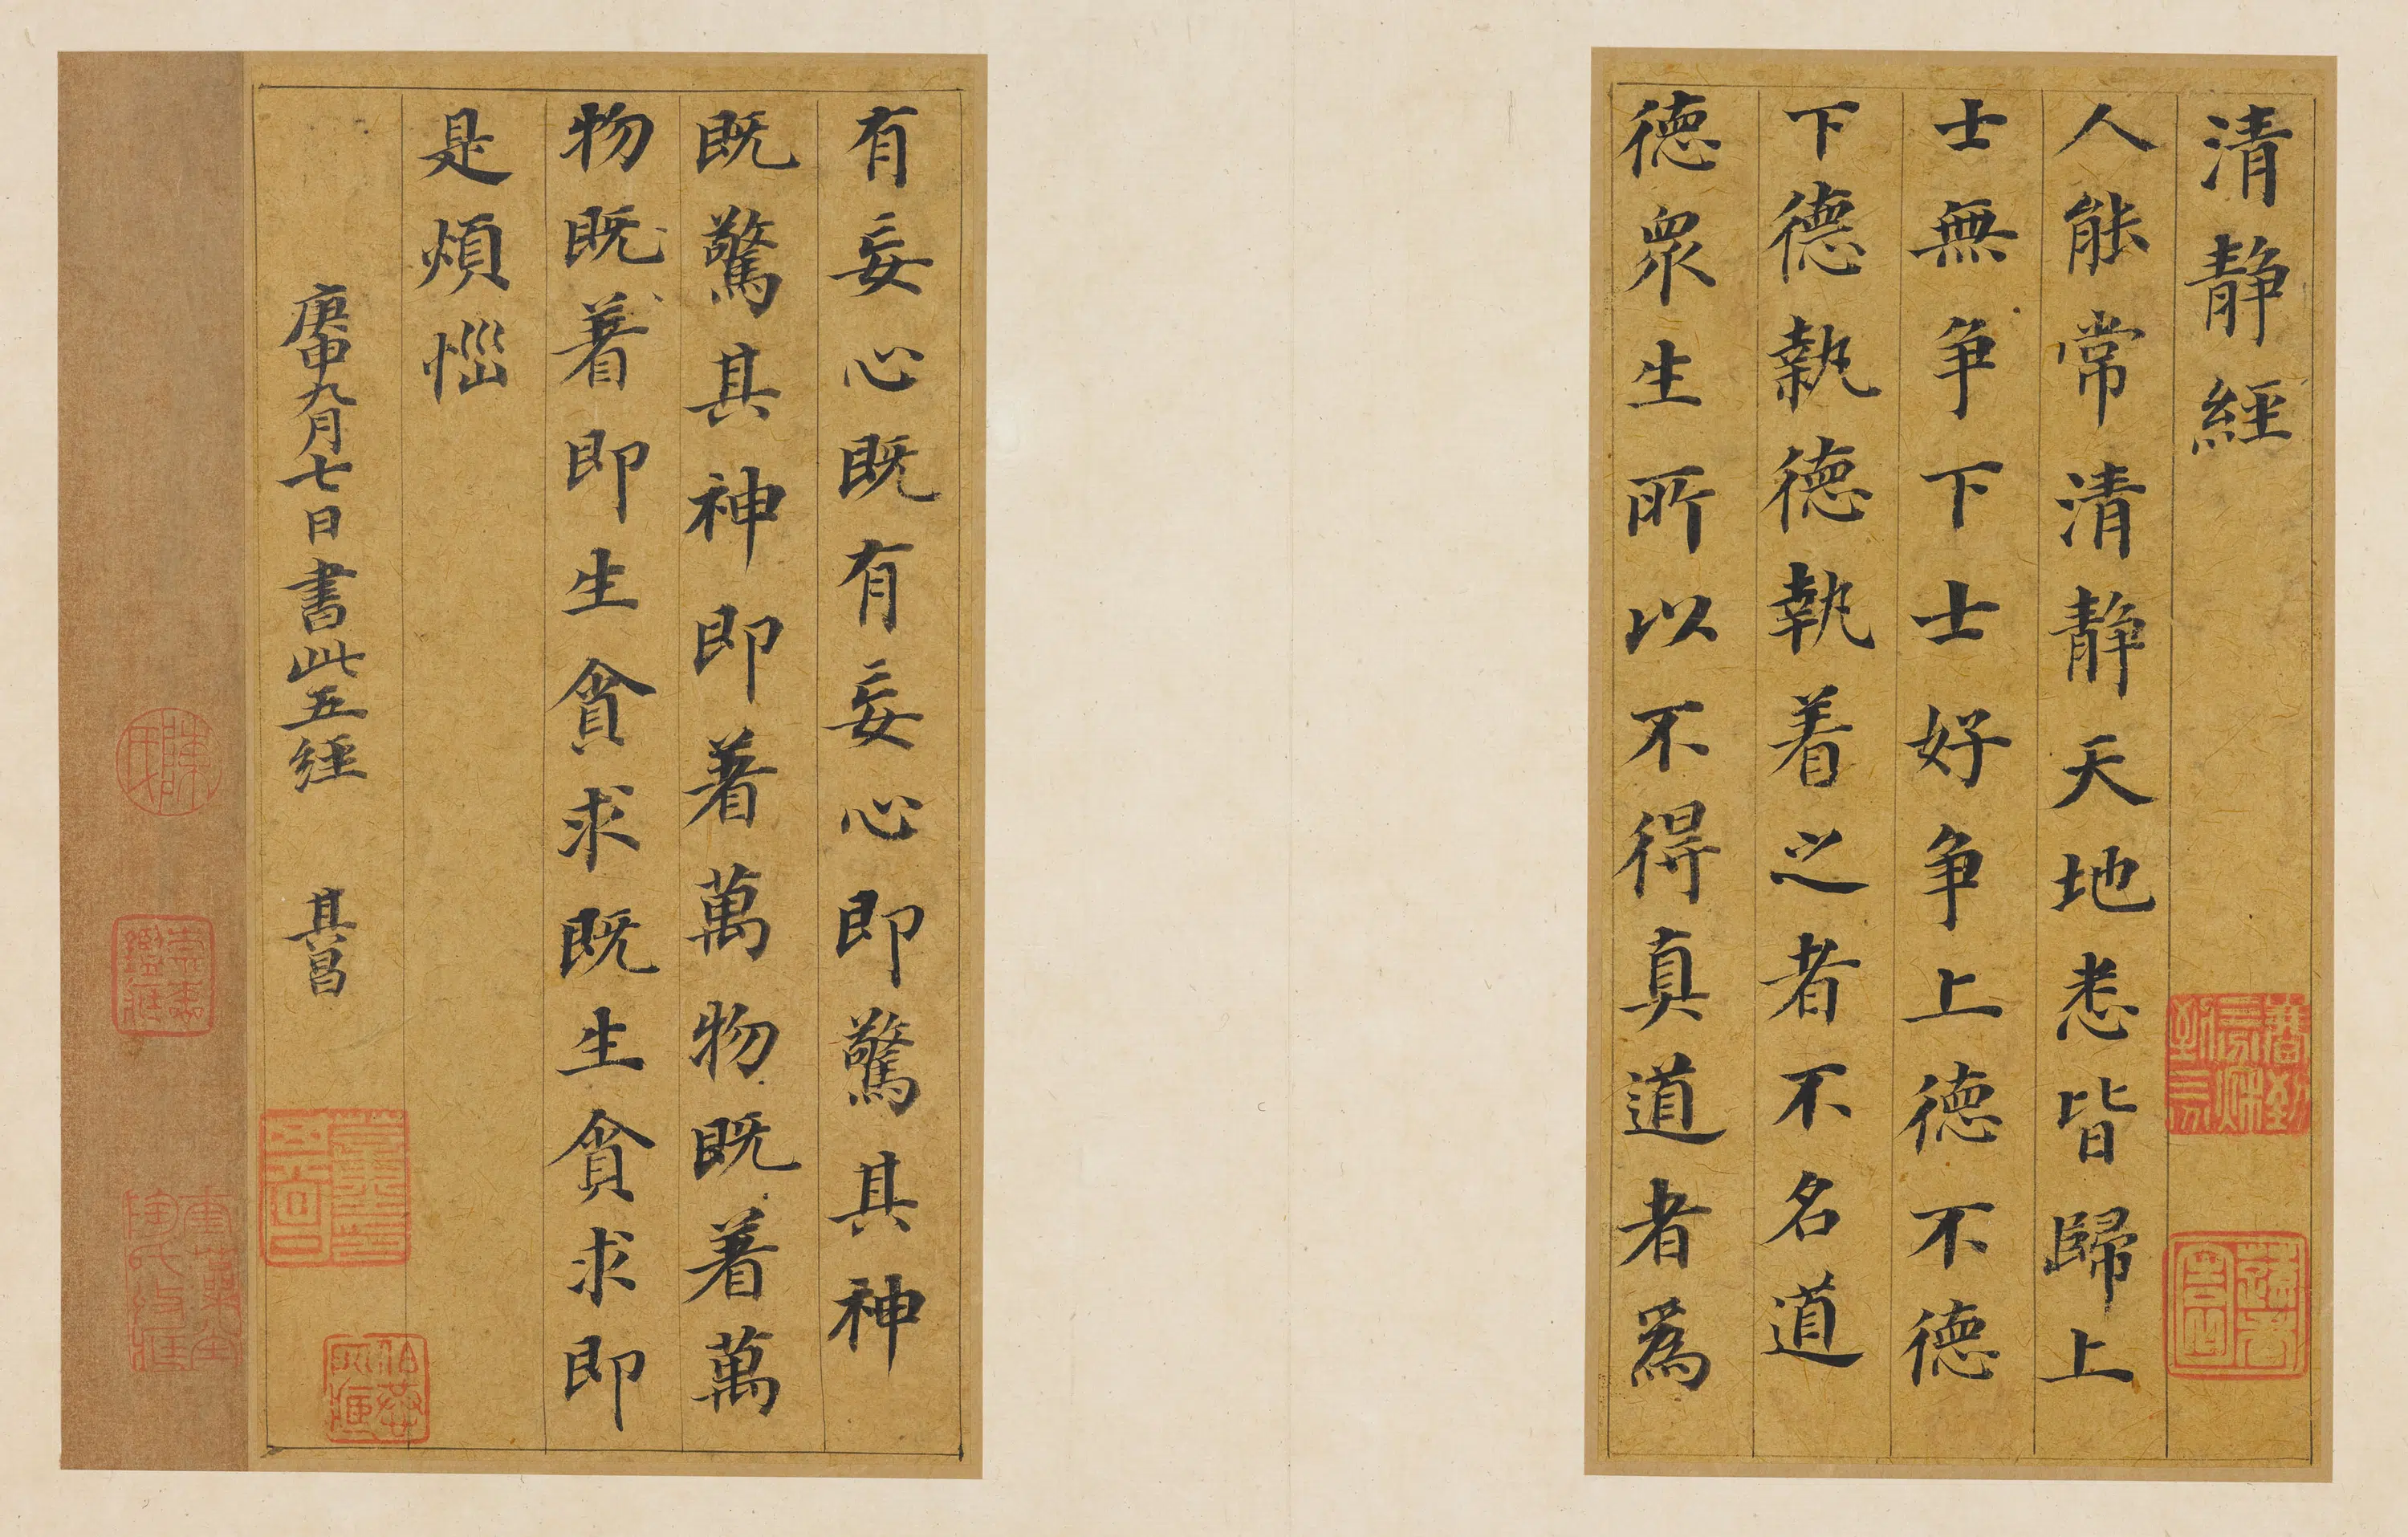 清静經
人能常清静天地悉皆歸上
士無争下士好争上德不德
下德執德執着之者不名道
德衆生所以不得真道者爲
有妄心既有妄心即驚其神
既驚其神即著萬物既著萬
物既著即生貪求既生貪求即
是煩惱
庚申九月七日書此五經 其昌